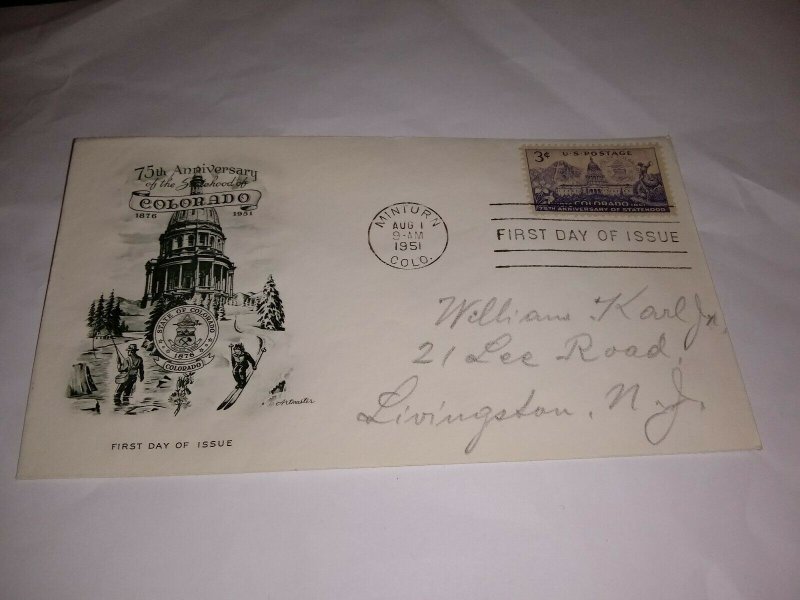 75th Anniversary
of the Statehood of
COLORADO
1876 1951
STATE OF COLORADO
1876
COLORADO
Artmaster
FIRST DAY OF ISSUE
MINTURN
AUG 1
9-AM
1951
COLO.
3¢ U.S. POSTAGE
COLORADO
75TH ANNIVERSARY OF STATEHOOD
FIRST DAY OF ISSUE
William Karl Jr.
21 Lee Road,
Livingston, N.J.